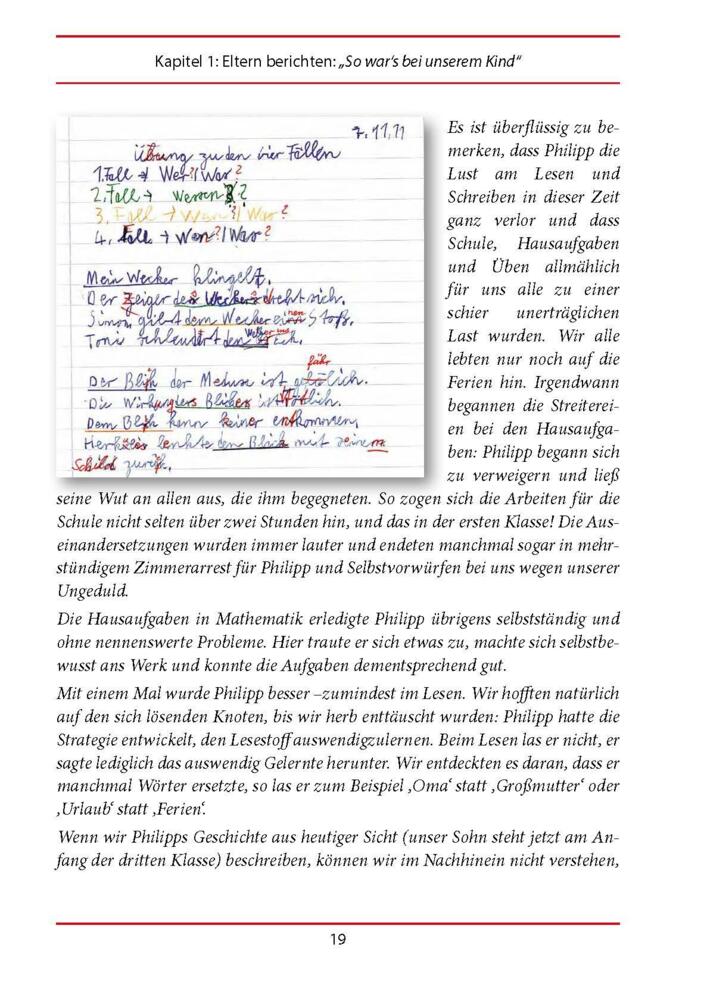 Kapitel 1: Eltern berichten: „So war's bei unserem Kind“
7.11.11
Übung zu den vier Fällen
1. Fall → Wer?/Was?
2. Fall → Wessen?
3. Fall → Wen?/Was?
4. Fall → Wen?/Was?
Mein Wecker klingelt.
Der Zeiger des Weckers dreht sich.
Simon gibt dem Wecker einen Stoß.
Toni schleudert den Wecker weg.
fähr
Der Blick der Meduse ist gefährlich.
Die Wirkung des Blickes ist tödlich.
Dem Blick kann keiner entkommen.
Herkules lenkte den Blick mit seinem
Schild zurück.
Es ist überflüssig zu be-
merken, dass Philipp die
Lust am Lesen und
Schreiben in dieser Zeit
ganz verlor und dass
Schule, Hausaufgaben
und Üben allmählich
für uns alle zu einer
schier unerträglichen
Last wurden. Wir alle
lebten nur noch auf die
Ferien hin. Irgendwann
begannen die Streiterei-
en bei den Hausaufga-
ben: Philipp begann sich
zu verweigern und ließ
seine Wut an allen aus, die ihm begegneten. So zogen sich die Arbeiten für die
Schule nicht selten über zwei Stunden hin, und das in der ersten Klasse! Die Aus-
einandersetzungen wurden immer lauter und endeten manchmal sogar in mehr-
stündigem Zimmerarrest für Philipp und Selbstvorwürfen bei uns wegen unserer
Ungeduld.
Die Hausaufgaben in Mathematik erledigte Philipp übrigens selbstständig und
ohne nennenswerte Probleme. Hier traute er sich etwas zu, machte sich selbstbe-
wusst ans Werk und konnte die Aufgaben dementsprechend gut.
Mit einem Mal wurde Philipp besser –zumindest im Lesen. Wir hofften natürlich
auf den sich lösenden Knoten, bis wir herb enttäuscht wurden: Philipp hatte die
Strategie entwickelt, den Lesestoff auswendigzulernen. Beim Lesen las er nicht, er
sagte lediglich das auswendig Gelernte herunter. Wir entdeckten es daran, dass er
manchmal Wörter ersetzte, so las er zum Beispiel ‚Oma‘ statt ‚Großmutter‘ oder
‚Urlaub‘ statt ‚Ferien‘.
Wenn wir Philipps Geschichte aus heutiger Sicht (unser Sohn steht jetzt am An-
fang der dritten Klasse) beschreiben, können wir im Nachhinein nicht verstehen,
19